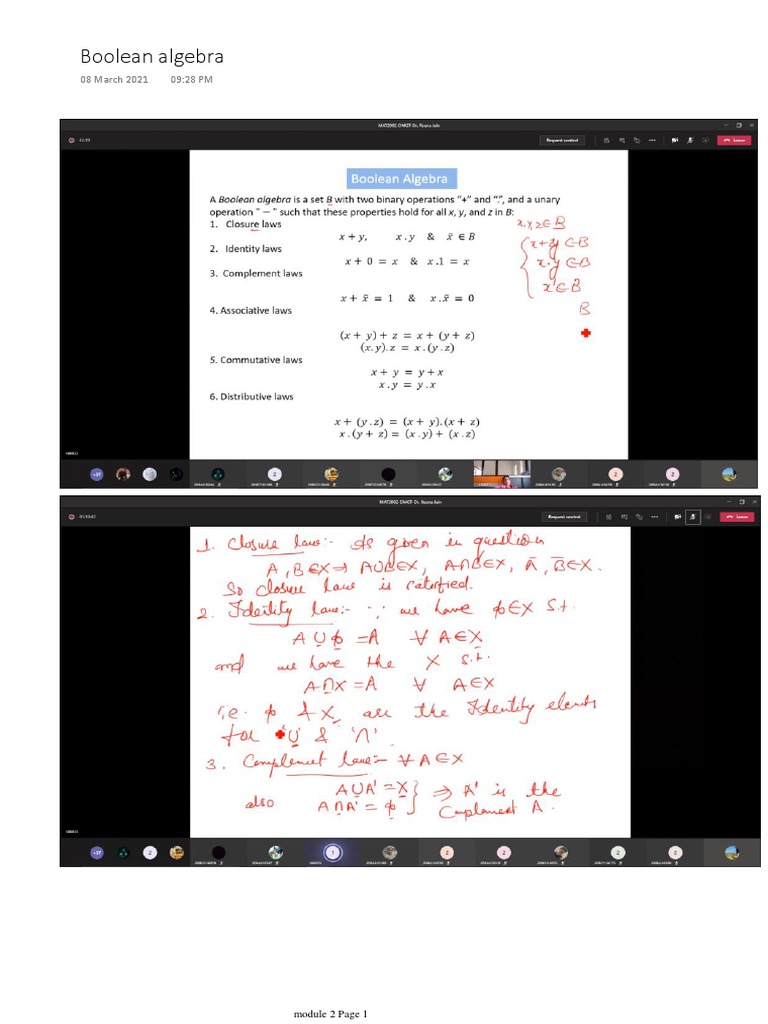 Boolean algebra
08 March 2021 09:28 PM
MAT2002-DMGT-Dr. Reena Jain
Request control
Leave
Boolean Algebra
A Boolean algebra is a set B with two binary operations "+" and ".", and a unary
operation " − " such that these properties hold for all x, y, and z in B:
1. Closure laws
x + y, x . y & x̄ ∈ B
2. Identity laws
x + 0 = x & x .1 = x
3. Complement laws
x + x̄ = 1 & x .x̄ = 0
4. Associative laws
(x + y) + z = x + (y + z)
(x. y). z = x . (y . z)
5. Commutative laws
x + y = y + x
x . y = y . x
6. Distributive laws
x + (y . z) = (x + y). (x + z)
x . (y + z) = (x . y) + (x . z)
x, y, z ∈ B
x + y ∈ B
x . y ∈ B
x' ∈ B
B
+57
2
2
2
Request control
Leave
1. Closure law:- As given in question
A, B ∈ X ⇒ A∪B ∈ X, A∩B ∈ X, Ā, B̄ ∈ X.
So closure law is satisfied.
2. Identity law:- ∵ we have ϕ ∈ X s.t.
A ∪ ϕ = A ∀ A ∈ X
and we have the X s.t.
A ∩ X = A ∀ A ∈ X
i.e. ϕ & X, are the Identity elements
for '∪' & '∩'.
3. Complement law:- ∀ A ∈ X
A ∪ A' = X
also A ∩ A' = ϕ } ⇒ A' is the
Complement A.
+57
2
1
2
2
2
2
module 2 Page 1